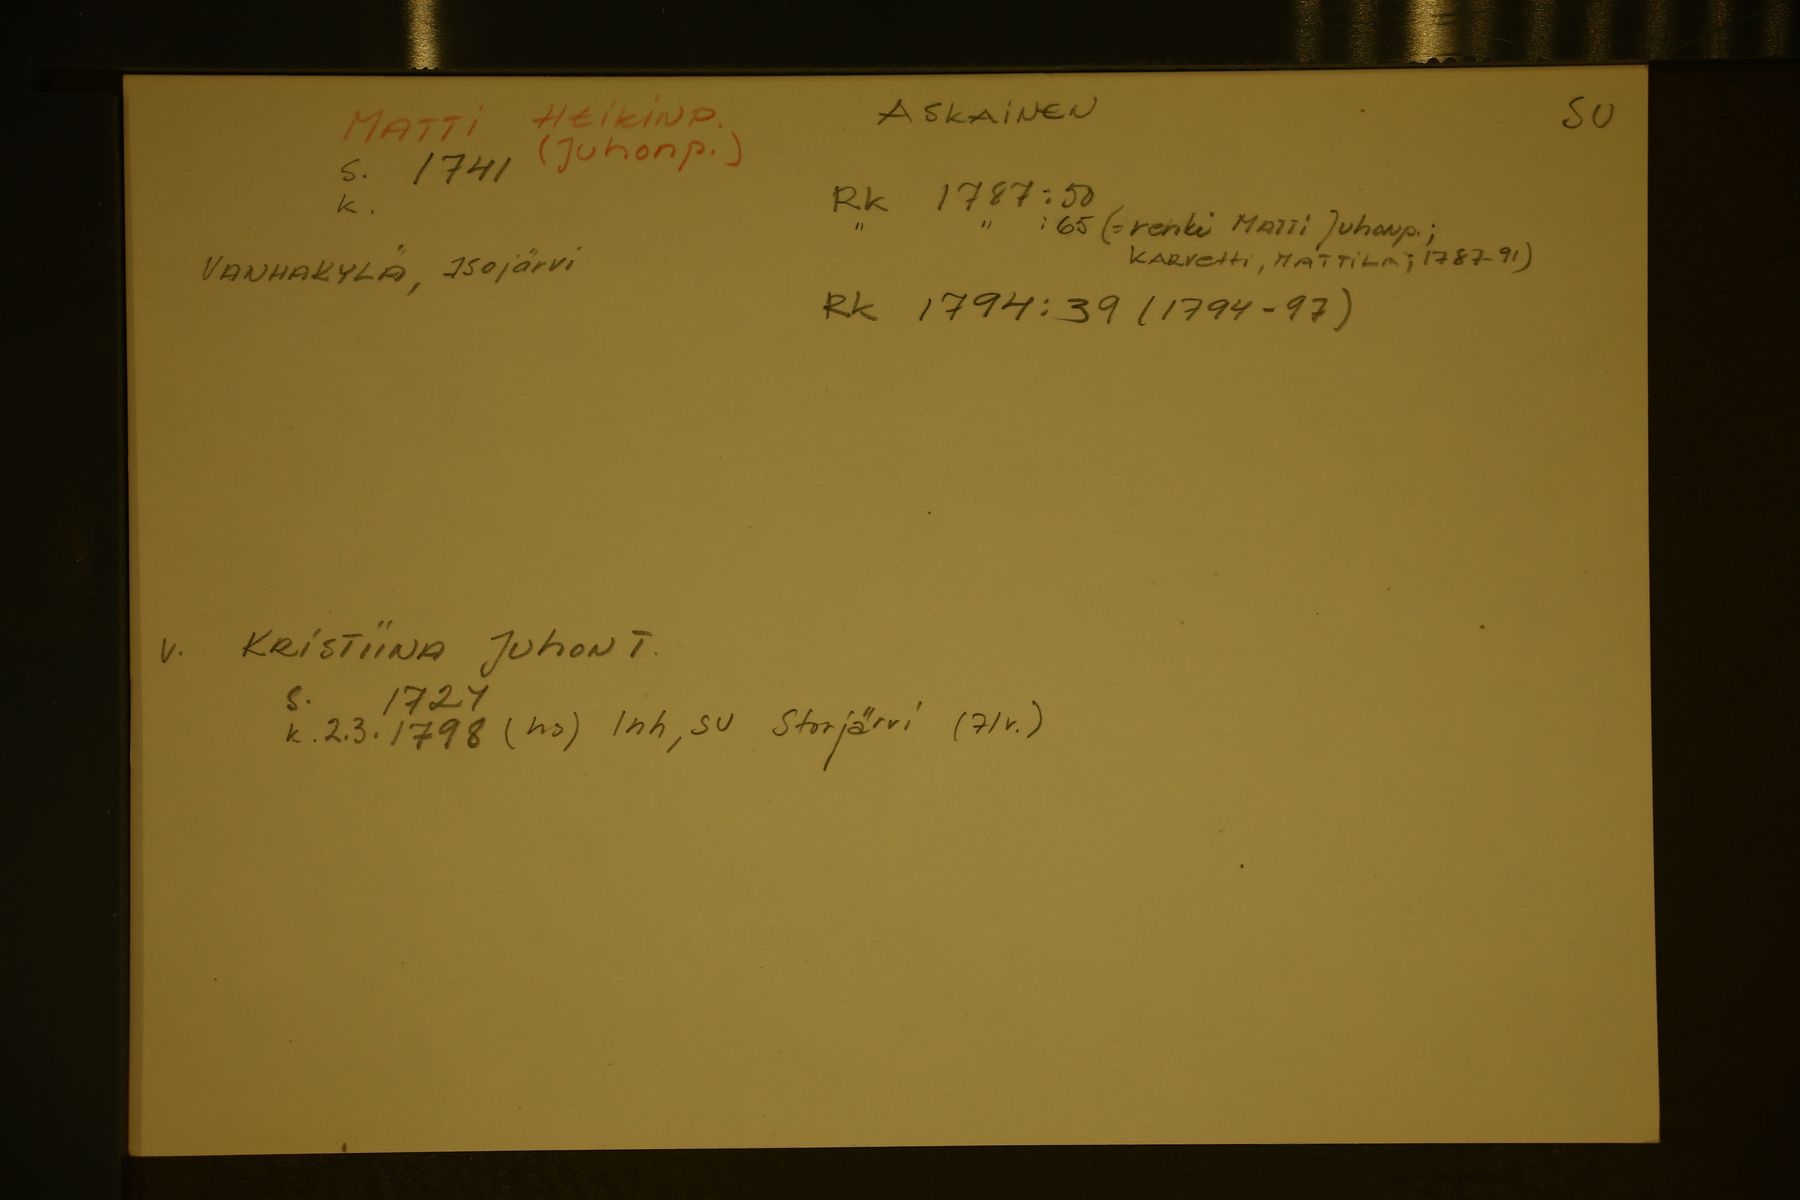 MATTI HEIKINP.
(Juhonp.)
s. 1741
k.
VANHAKYLÄ, Isojärvi
ASKAINEN
SU
Rk 1787:50
" " :65 (= renki MATTI Juhonp.;
KARVETTI, MATTILA; 1787-91)
Rk 1794:39 (1794-97)
v. KRISTIINA JUHONT.
s. 1727
k. 2.3.1798 (hs) Inh, SU Storjärvi (71v.)